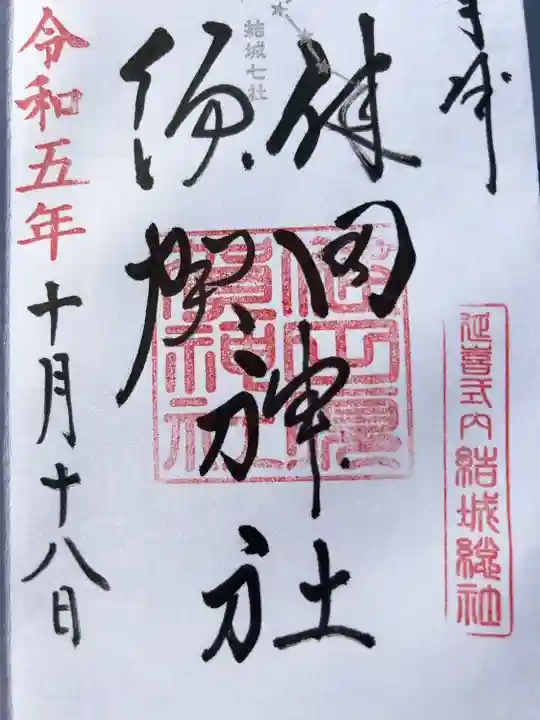 拝
延喜式内結城総社
結城七社
健田神社
須賀神社
健田須
賀神社
令和五年十月十八日